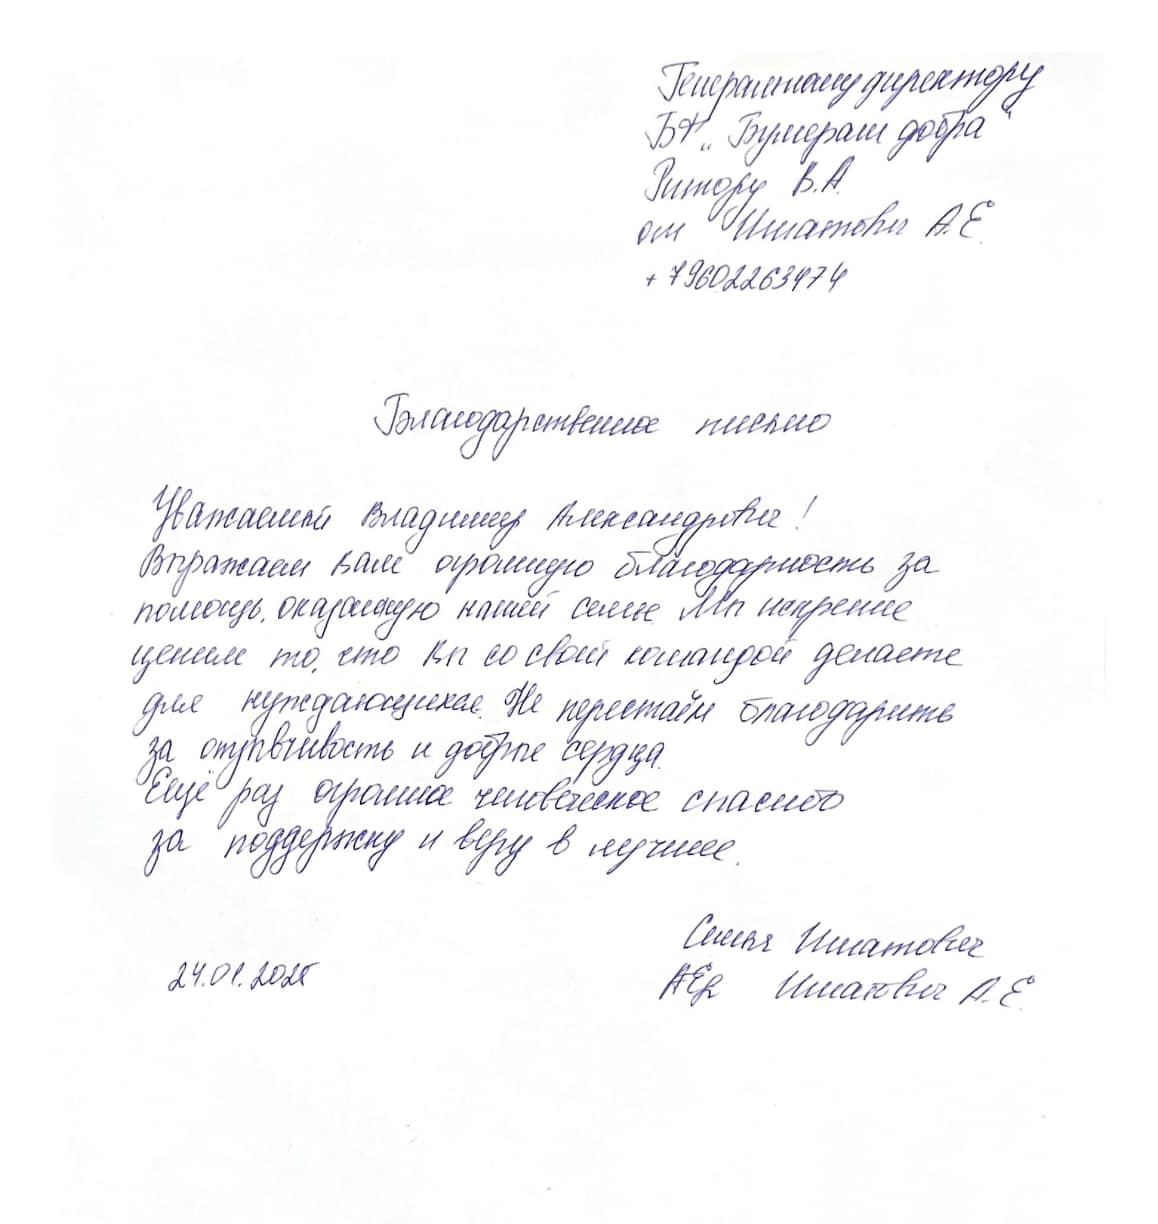 Генеральному директору
БФ "Бумеранг добра"
Ритору В.А.
от Игнатович А.Е.
+79602263474
Благодарственное письмо
Уважаемый Владимир Александрович!
Выражаем Вам огромную благодарность за
помощь, оказанную нашей семье. Мы искренне
ценим то, что Вы со своей командой делаете
для нуждающихся. Не перестаём благодарить
за отзывчивость и добрые сердца.
Ещё раз огромное человеческое спасибо
за поддержку и веру в лучшее.
Семья Игнатович
24.01.2025 Игнатович А.Е.